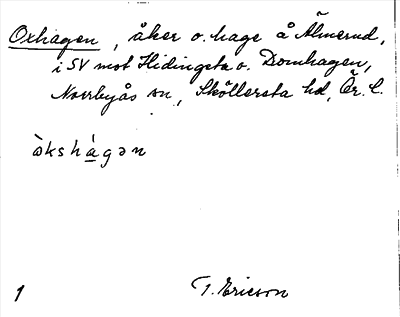 Oxhagen, åker o. hage å Älmerud,
i SV mot Hidingsta o. Domhagen,
Norrbyås sn, Sköllersta hd, Ör. l.
òkshágən
1 T. Ericson